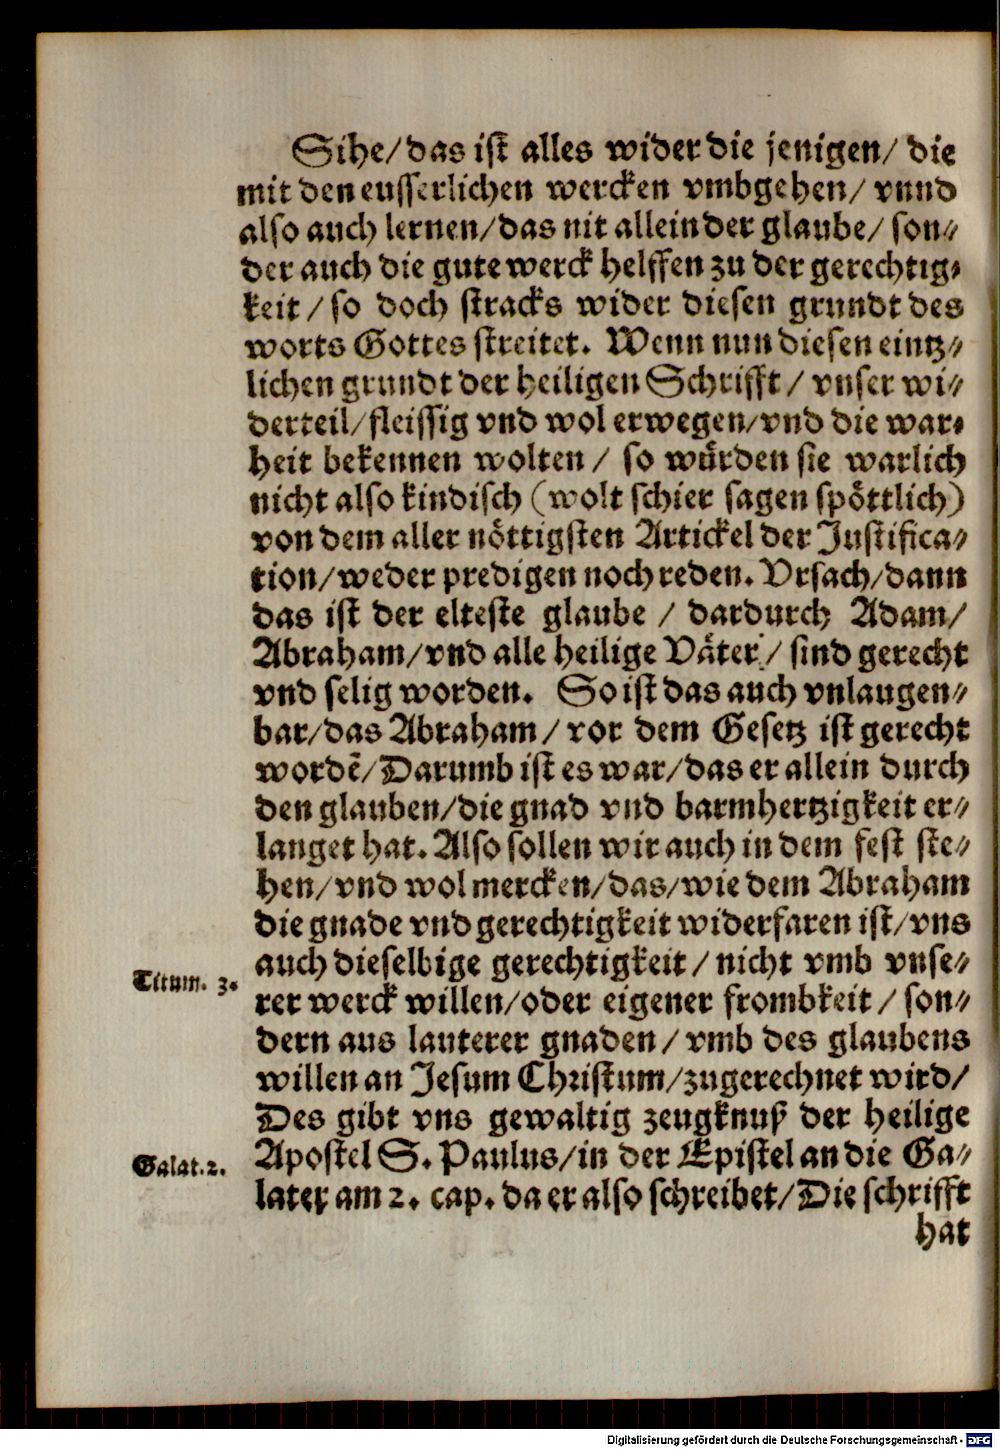 Sihe/das ist alles wider die jenigen/ die
mit den eusserlichen wercken vmbgehen/ vnnd
also auch lernen/das nit allein der glaube/ son⸗
der auch die gute werck helffen zu der gerechtig⸗
keit / so doch stracks wider diesen grundt des
worts Gottes streitet. Wenn nun diesen eintz⸗
lichen grundt der heiligen Schrifft / vnser wi⸗
derteil/fleissig vnd wol erwegen/vnd die war⸗
heit bekennen wolten / so wuͤrden sie warlich
nicht also kindisch (wolt schier sagen spoͤttlich)
von dem aller noͤttigsten Artickel der Justifica⸗
tion/weder predigen noch reden. Vrsach/dann
das ist der elteste glaube / dardurch Adam/
Abraham/vnd alle heilige Vaͤter/ sind gerecht
vnd selig worden. So ist das auch vnlaugen⸗
bar/das Abraham / vor dem Gesetz ist gerecht
wordē/Darumb ist es war/das er allein durch
den glauben/die gnad vnd barmhertzigkeit er⸗
langet hat. Also sollen wir auch in dem fest ste⸗
hen/vnd wol mercken/das/wie dem Abraham
die gnade vnd gerechtigkeit widerfaren ist/vns
auch dieselbige gerechtigkeit / nicht vmb vnse⸗
Titum. 3.
rer werck willen/oder eigener frombkeit / son⸗
dern aus lauterer gnaden / vmb des glaubens
willen an Jesum Christum/zugerechnet wird/
Des gibt vns gewaltig zeugknuß der heilige
Apostel S. Paulus/in der Epistel an die Ga⸗
Galat.2.
later am 2. cap. da er also schreibet/Die schrifft
hat
Digitalisierung gefördert durch die Deutsche Forschungsgemeinschaft - DFG